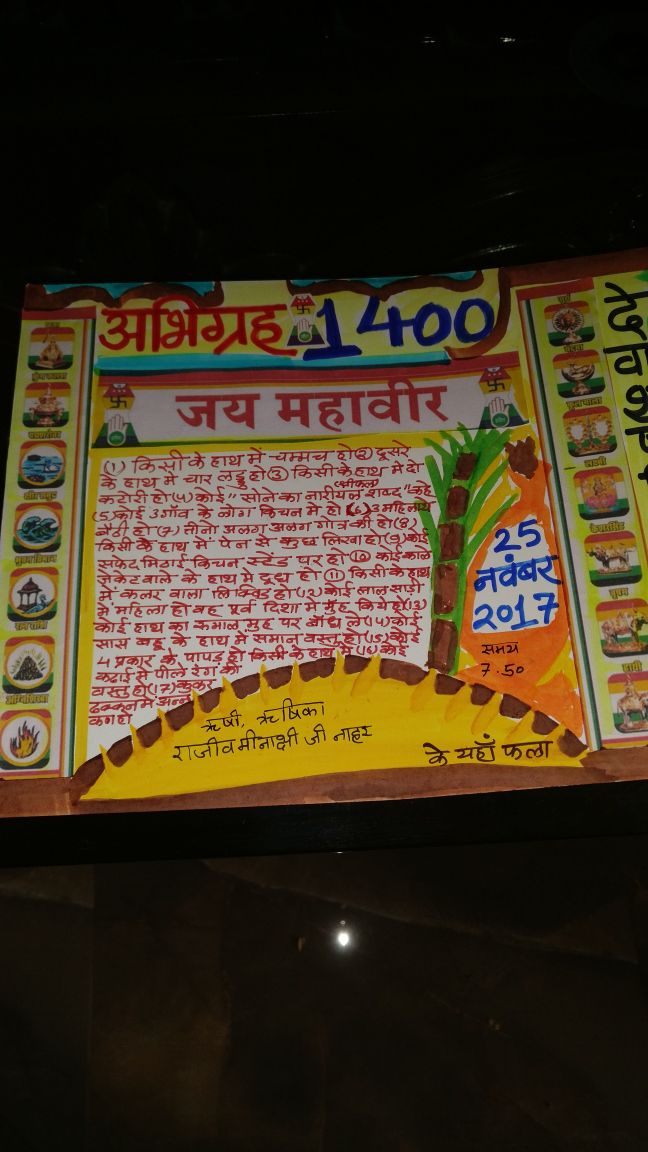 अभिग्रह 1400
जय महावीर
(1) किसी के हाथ में चम्मच हो② दूसरे
के हाथ में चार लड्डू हो③ किसी के हाथ में दो
कटोरी हो(4) कोई "सोने का नारीयल शब्द" कहे
(श्रीफल)
(5) कोई 3 गाँव के लोग किचन मे हो (6) 3 महिलाये
बैठी हो(7) तीनो अलग अलग गोत्र की हो(8)
किसी के हाथ में पेन से कुछ लिखा हो(9) कोई
सफेद मिठाई किचन स्टेंड पर हो ⑩ कोई काले
जेकेट वाले के हाथ मे दूध हो ⑪ किसी के हाथ
में कलर वाला लिक्विड हो(12) कोई लाल साड़ी
मे महिला हो वह पूर्व दिशा में मुँह किये हो(13)
कोई हाथ का रुमाल मुह पर बाँध ले(14) कोई
सास बहू के हाथ में समान वस्तु हो(15) कोई
4 प्रकार के पापड़ हो किसी के हाथ में(16) कोई
कढाई मे पीले रंग की
वस्तु हो(17) कुकर
ढक्कन मे अन्न
कण हो
25
नवंबर
2017
समय
7.50
ऋषी, ऋषिका
राजीव मीनाक्षी जी नाहर
के यहाँ फला
कुंभ कलश
पद्मसरोवर
क्षीर समुद्र
रत्न राशी
अग्निशिखा
फूल माला
लक्ष्मी
केशरसिंह
वृषभ
हाथी